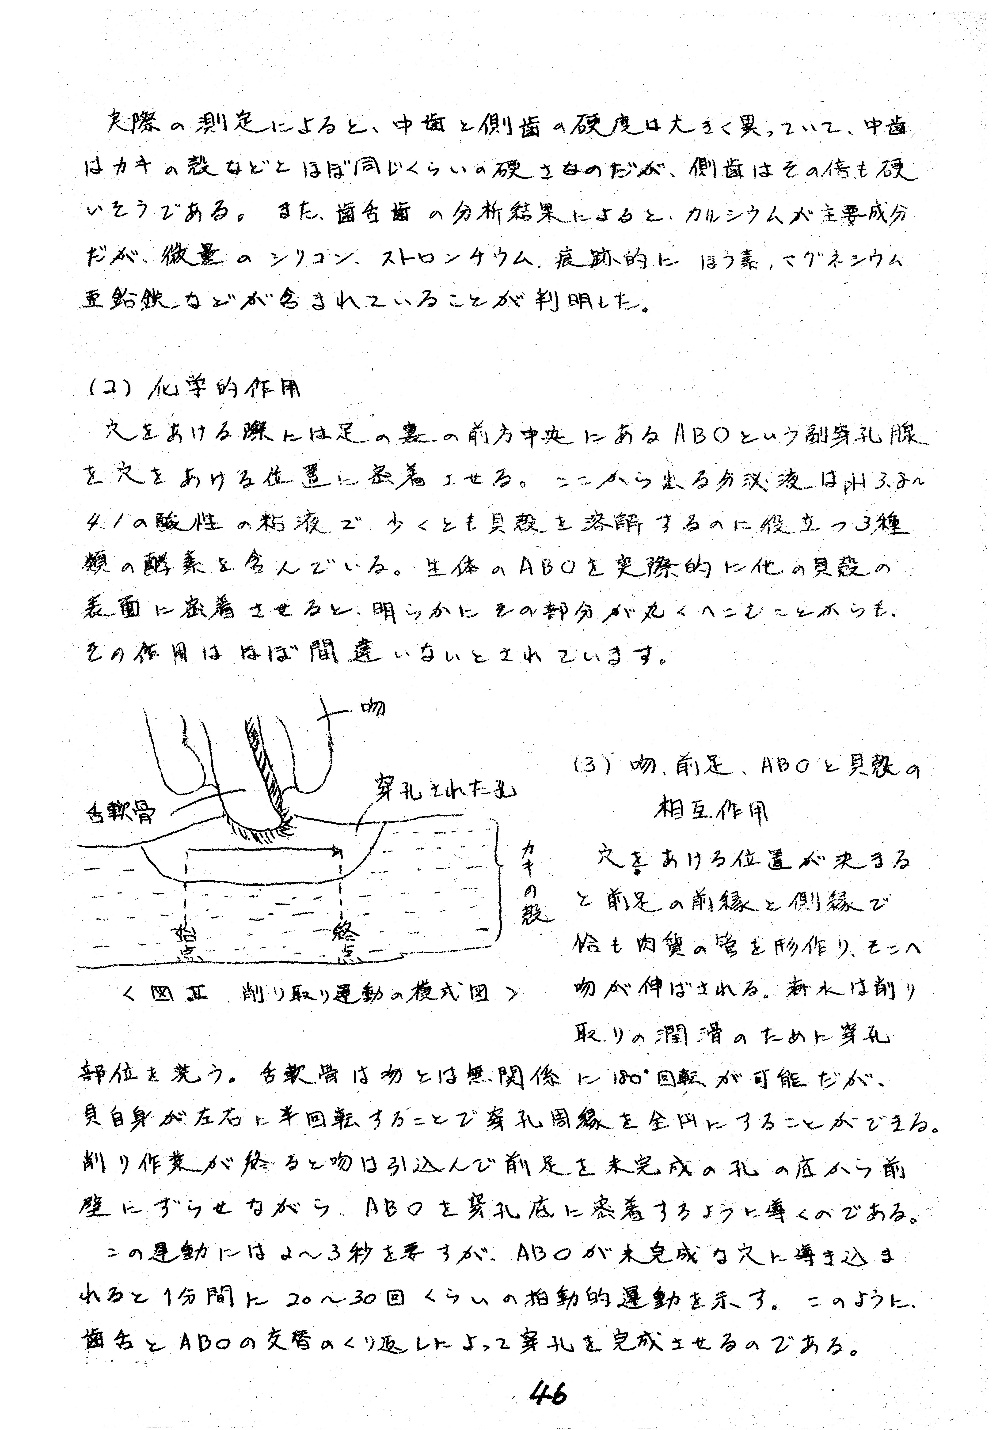 実際の測定によると、中歯と側歯の硬度は大きく異っていて、中歯
はカキの殻などとほぼ同じくらいの硬さなのだが、側歯はその倍も硬
いそうである。また、歯舌歯の分析結果によると、カルシウムが主要成分
だが、微量のシリコン、ストロンチウム、痕跡的にほう素,マグネシウム
亜鉛鉄などが含まれていることが判明した。
(2) 化学的作用
穴をあける際には足の裏の前方中央にあるABOという副穿孔腺
を穴をあける位置に密着させる。ここから出る分泌液はpH3.8〜
4.1の酸性の粘液で少くとも貝殻を溶解するのに役立つ3種
類の酵素を含んでいる。生体のABOを実際的に他の貝殻の
表面に密着させると、明らかにその部分が丸くへこむことからも、
その作用はほぼ間違いないとされています。
吻
舌軟骨
穿孔された孔
カキの殻
始点
終点
<図Ⅱ 削り取り運動の模式図>
(3) 吻、前足、ABOと貝殻の
相互作用
穴をあける位置が決まる
と前足の前縁と側縁で
恰も肉質の管を形作り、そこへ
吻が伸ばされる。海水は削り
取りの潤滑のために穿孔
部位を洗う。舌軟骨は吻とは無関係に180°回転が可能だが、
貝自身が左右に半回転することで穿孔周縁を全円にすることができる。
削り作業が終ると吻は引込んで前足を未完成の孔の底から前
壁にずらせながら、ABOを穿孔底に密着するように導くのである。
この運動には2〜3秒を要すが、ABOが未完成な穴に導き込ま
れると1分間に20〜30回くらいの拍動的運動を示す。このように、
歯舌とABOの交替のくり返しによって穿孔を完成させるのである。
46